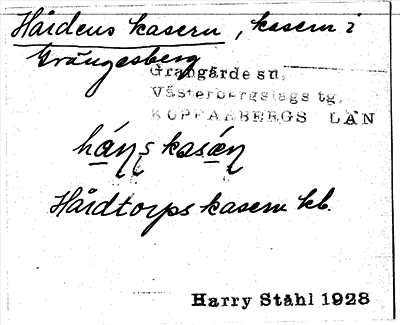 Hårdens kasern, kasern i
Grängesberg
Grangärde sn,
Västerbergslags tg,
KOPPARBERGS LÄN
Hårdtorps kasern kb.
Harry Ståhl 1928